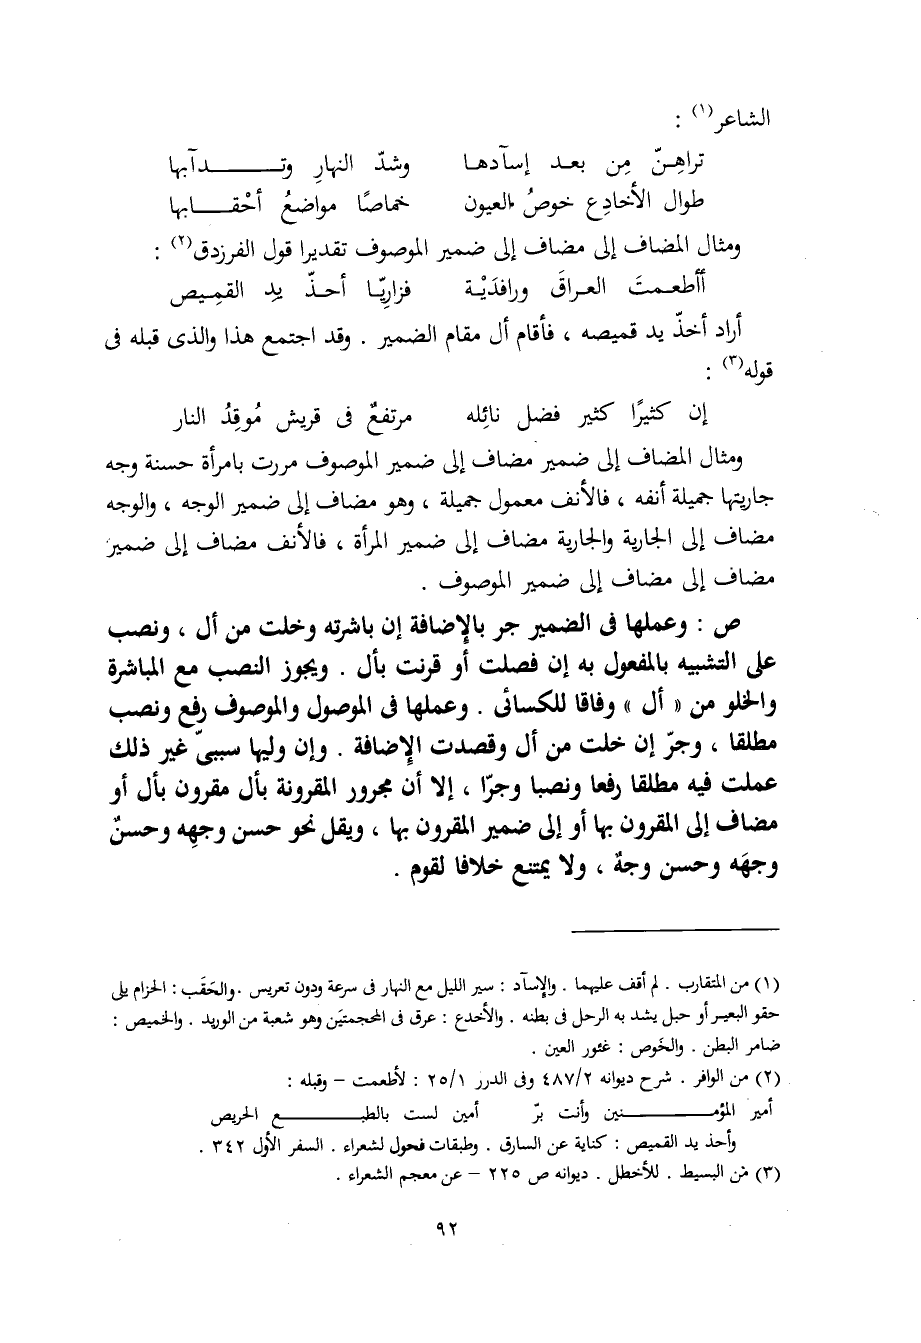 الشاعر(١) :
تراهنّ مِن بعد إسآدها وشدّ النهارِ وتدآبها
طوال الأخادِع خوصُ العيون خماصًا مواضعُ أحْقابها
ومثال المضاف إلى مضاف إلى ضمير الموصوف تقديرا قول الفرزدق(٢) :
أأطعمتَ العراقَ ورافدَيْة فزاريّا أحذّ يدِ القمِيص
أراد أحذّ يد قميصه ، فأقام أل مقام الضمير . وقد اجتمع هذا والذى قبله فى
قوله(٣) :
إن كثيرًا كثير فضل نائِله مرتفعٌ فى قريش مُوقِدُ النار
ومثال المضاف إلى ضمير مضاف إلى ضمير الموصوف مررت بامرأة حسنة وجه
جاريتها جميلة أنفه ، فالأنف معمول جميلة ، وهو مضاف إلى ضمير الوجه ، والوجه
مضاف إلى الجارية والجارية مضاف إلى ضمير المرأة ، فالأنف مضاف إلى ضمير
مضاف إلى مضاف إلى ضمير الموصوف .
ص : وعملها فى الضمير جر بالإضافة إن باشرته وخلت من أل ، ونصب
على التشبيه بالمفعول به إن فصلت أو قرنت بأل . ويجوز النصب مع المباشرة
والخلو من « أل » وفاقا للكسائى . وعملها فى الموصول والموصوف رفع ونصب
مطلقا ، وجرّ إن خلت من أل وقصدت الإضافة . وإن وليها سببىّ غير ذلك
عملت فيه مطلقا رفعا ونصبا وجرّا ، إلا أن مجرور المقرونة بأل مقرون بأل أو
مضاف إلى المقرون بها أو إلى ضمير المقرون بها ، ويقل نحو حسن وجهِه وحسنٌ
وجهَه وحسن وجهٌ ، ولا يمتنع خلافا لقوم .
(١) من المتقارب . لم أقف عليهما . والإسآد : سير الليل مع النهار فى سرعة ودون تعريس . والحَقَب : الحزام يلى
حقو البعير أو حبل يشد به الرحل فى بطنه . والأخدع : عرق فى المحجمتَين وهو شعبة من الوريد . والخميص :
ضامر البطن . والخَوص : غئور العين .
(٢) من الوافر . شرح ديوانه ٤٨٧/٢ وفى الدرر ٢٥/١ : لأطعمت – وقبله :
أمير المؤمنين وأنت برّ أمين لست بالطبع الحريص
وأحذ يد القميص : كناية عن السارق . وطبقات فحول لشعراء . السفر الأول ٣٤٢ .
(٣) من البسيط . للأخطل . ديوانه ص ٢٢٥ – عن معجم الشعراء .
٩٢